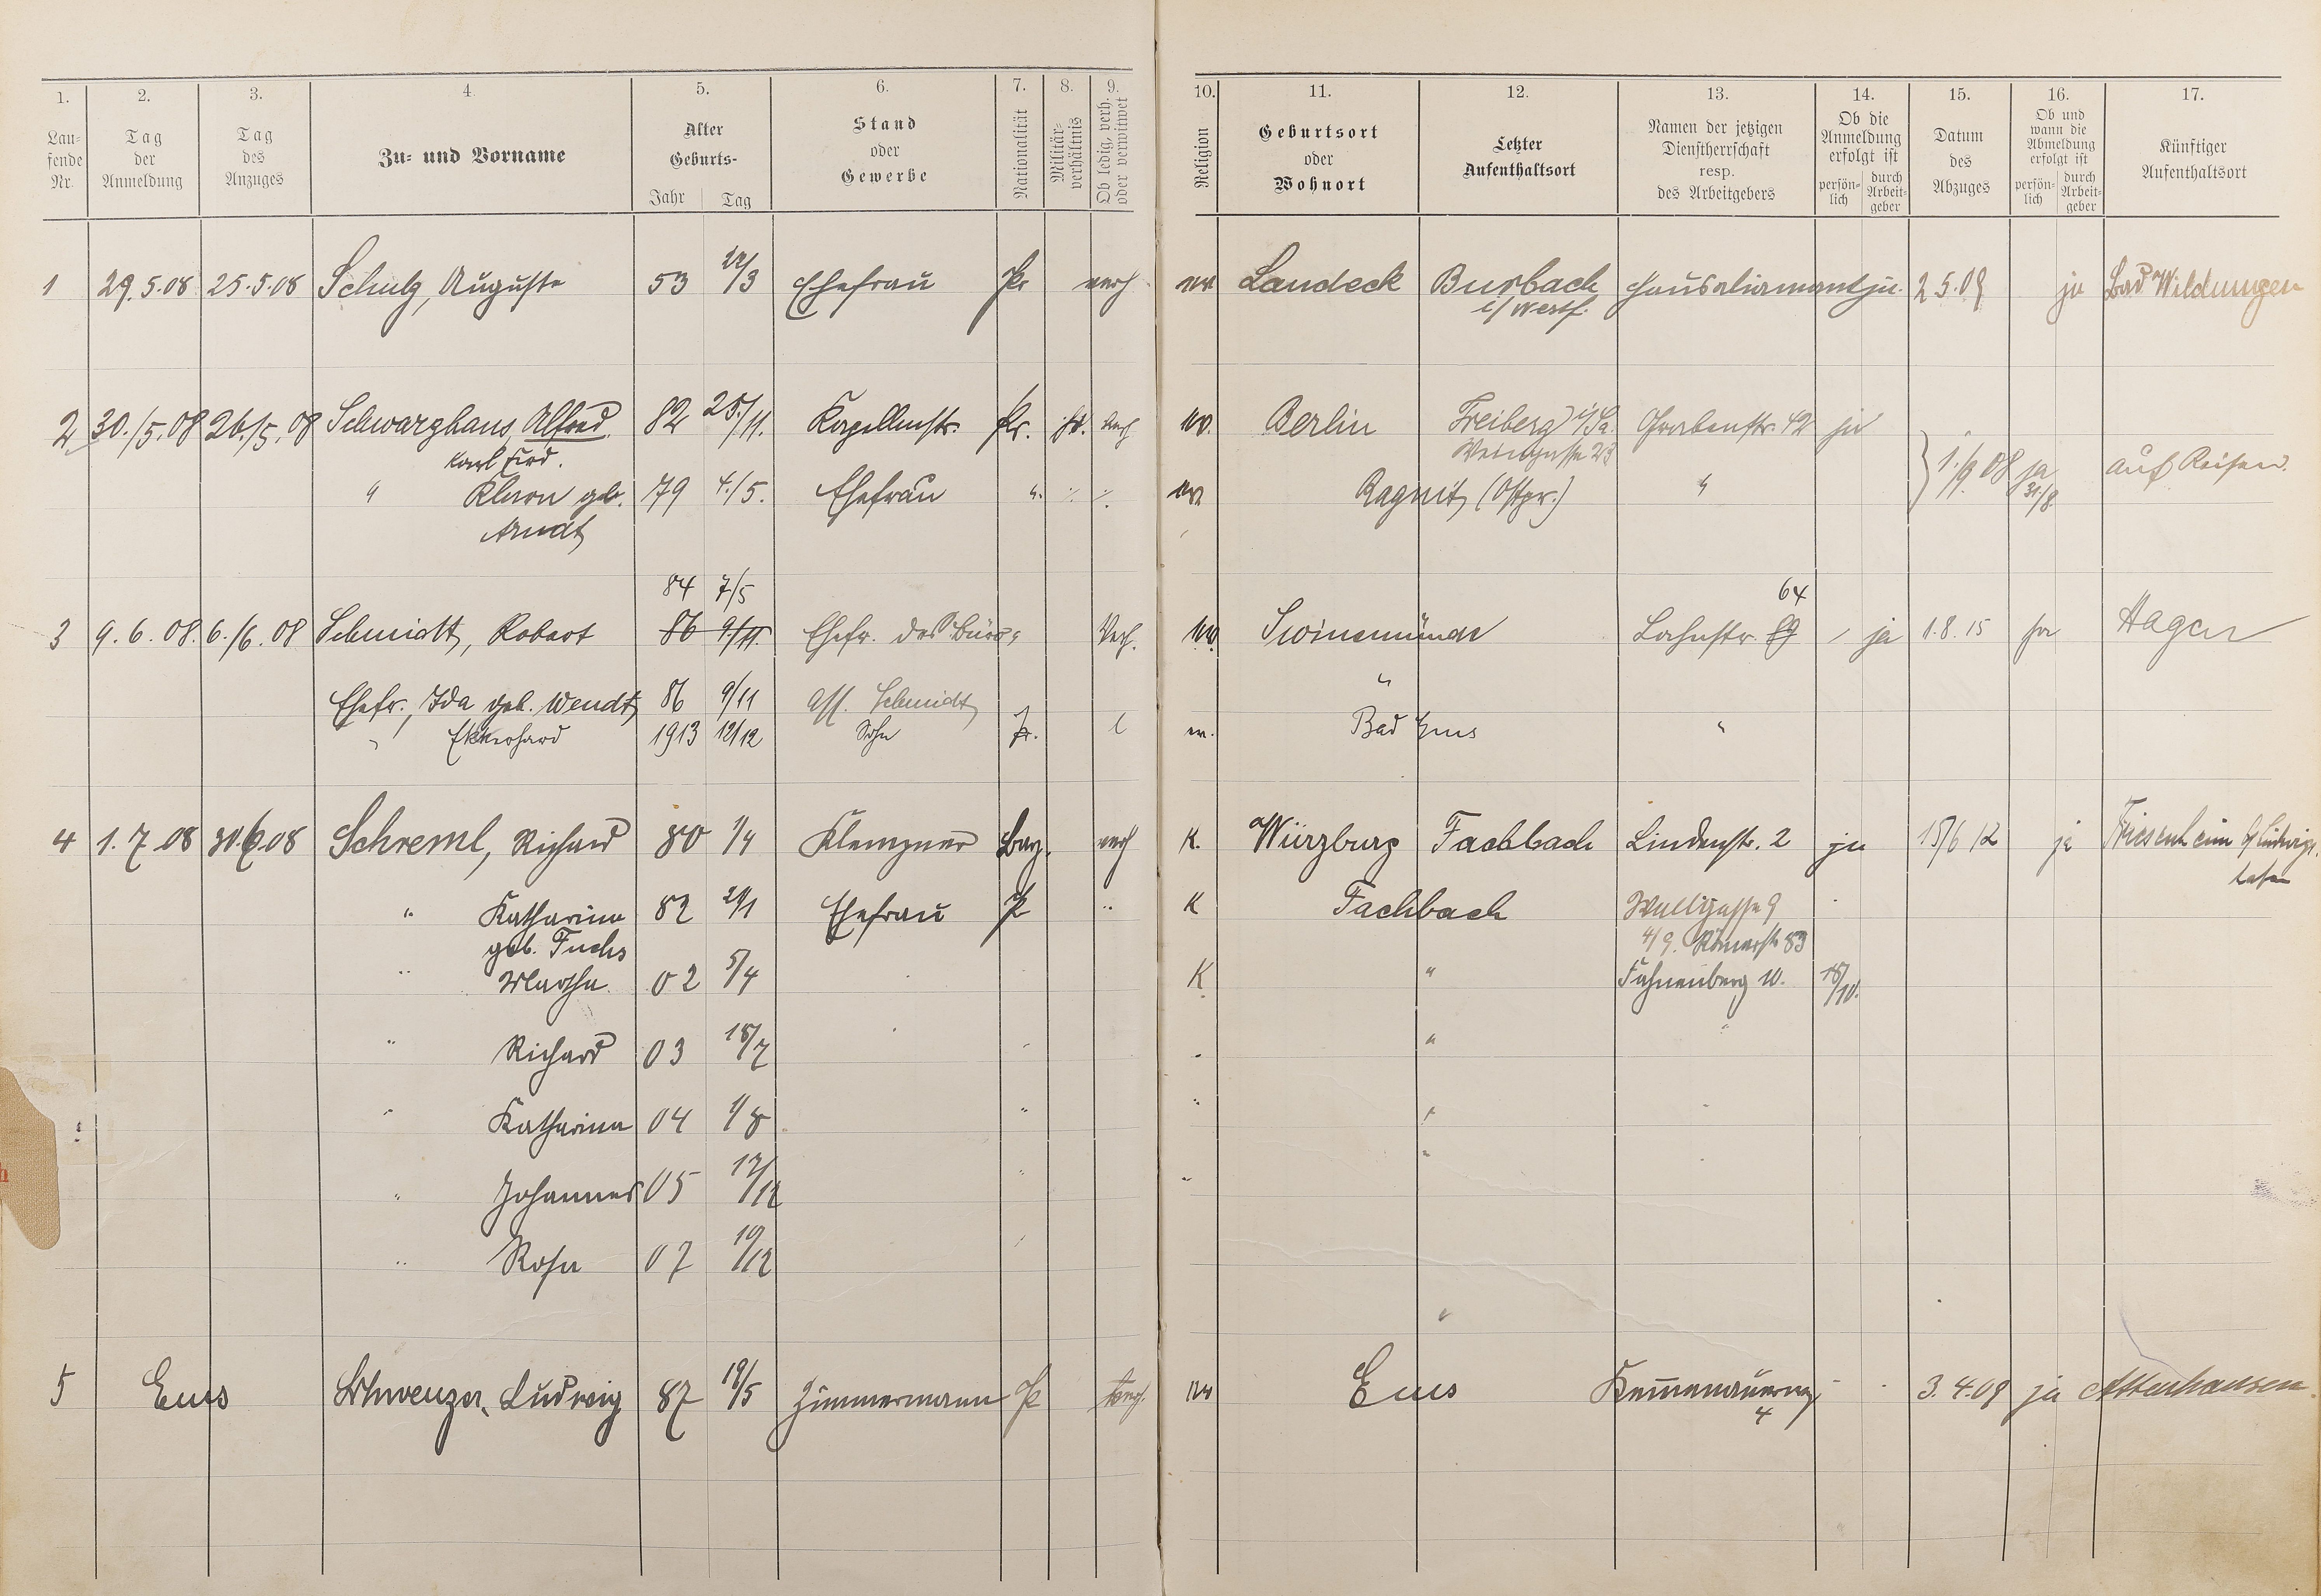 1. 2. 3. 4. 5. 6. 7. 8. 9. 10. 11. 12. 13. 14. 15. 16. 17.
Laufende Nr.
Tag der Anmeldung
Tag des Anzuges
Zu- und Vorname
Alter
Geburts-
Jahr Tag
Stand oder Gewerbe
Nationalität
Militär-verhältnis
Ob ledig, verh. oder verwitwet
Religion
Geburtsort oder Wohnort
Letzter Aufenthaltsort
Namen der jetzigen Dienstherrschaft resp. des Arbeitgebers
Ob die Anmeldung erfolgt ist
persön-lich durch Arbeit-geber
Datum des Abzuges
Ob und wann die Abmeldung erfolgt ist
persön-lich durch Arbeit-geber
Künftiger Aufenthaltsort
1 29.5.08 25.5.08 Schulz, Auguste 53 22/3 Ehefrau Pr verh ev. Landeck Burbach ja 2 5.09 ja Bad Wildungen
i/Westf.
2 30./5.08 26./5.08 Schwarzhans, Alfred 82 25./11. Kapellmstr. Pr. verh ev. Berlin Freiberg i/Sa. Grabenstr. 42 ja
Karl Ferd. Weingasse 23
" Klara geb. 79 4./5. Ehefrau " ev. Ragnit (Ostpr.) " 1./9 08 ja 31/8 auf Reisen
Arndt
84 7/5 64
3 9.6.08. 6./6.08 Schmidt, Robert 86 9./11. Ehefr. des Büro- Verh. ev. Swinemünde Lahnstr. 89 ja 1.8.15 ja Hagen
Ehefr., Ida geb. Wendt 86 9/11 Ass. Schmidt "
" Ekkerhard 1913 12/12 Sohn Pr. l ev. Bad Ems "
4 1.7.08 30.6.08 Schreml, Richard 80 1/4 Klempner Bay. verh K. Würzburg Fachbach Lindenstr. 2 ja 15/6 12 ja Friesenheim b/Ludwigs-
hafen
" Katharina 82 29/1 Ehefrau P " K Fachbach Wallgasse 9
geb. Fuchs 4/9. Römerstr 83
" Martha 02 5/4 K " Fahnenberg 10. 15/10.
" Richard 03 18/7 "
" Katharina 04 1/8 " " "
" Johannes 05 17/12 " " "
" Rosa 07 10/12 "
"
5 Ems Schwenzer, Ludwig 87 19/5 Zimmermann P verh. ev Ems Kemmenauerweg 3.4.09 ja Attenhausen
4